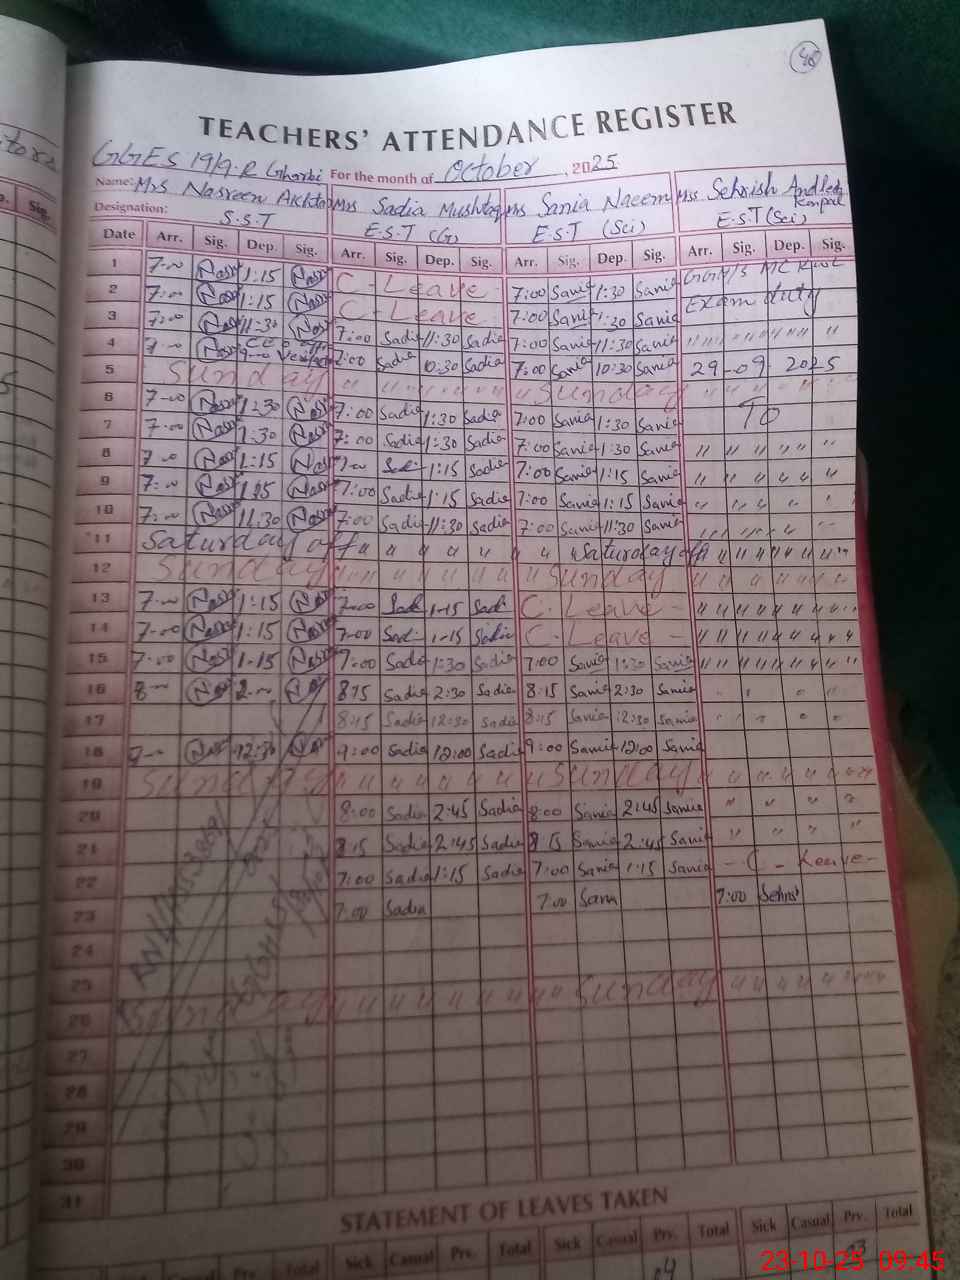 40
TEACHERS' ATTENDANCE REGISTER
GGES 19/9-R Gharbi For the month of October, 2025
Name: Mrs Nasreen Akhtar Mrs Sadia Mushtaq Mrs Sania Naeem Mrs Sehrish Andleeb
Designation: S.S.T E.S.T (G) E.S.T (Sci) E.S.T (Sci)
Date Arr. Sig. Dep. Sig. Arr. Sig. Dep. Sig. Arr. Sig. Dep. Sig. Arr. Sig. Dep. Sig.
1 7-00 Nasr 1:15 Nasr C-Leave 7:00 Sania 1:30 Sania
2 7:00 Nasr 1:15 Nasr C-Leave 7:00 Sania 1:30 Sania Exam duty
3 7:00 Nasr 11:30 Nasr 7:00 Sadia 11:30 Sadia 7:00 Sania 11:30 Sania " " " " " " "
4 7-00 Nasr 7:00 Sadia 10:30 Sadia 7:00 Sania 10:30 Sania 29-09-2025
5 Sunday " " " " " " " Sunday " " " "
6 7-00 Nasr 1:30 Nasr 7:00 Sadia 1:30 Sadia 7:00 Sania 1:30 Sania To
7 7-00 Nasr 1:30 Nasr 7:00 Sadia 1:30 Sadia 7:00 Sania 1:30 Sania " " " " "
8 7-00 Nasr 1:15 Nasr 7-00 Sadi 1:15 Sadia 7:00 Sania 1:15 Sania " " " " "
9 7:00 Nasr Nasr 7:00 Sadia 1:15 Sadia 7:00 Sania 1:15 Sania " " " "
10 7:00 Nasr 11:30 Nasr 7:00 Sadia 11:30 Sadia 7:00 Sania 11:30 Sania " " " " "
11 Saturday off " " " " " " " Saturday off " " " " " " "
12 Sunday " " " " " " " Sunday " " " " "
13 7-00 Nasr 1:15 Nasr 7-00 Sadi 1-15 Sadi C-Leave - " " " " " " "
14 7-00 Nasr 1:15 Nasr 7-00 Sadi 1-15 Sadia C-Leave - " " " " " " "
15 7-00 Nasr 1-15 Nasr 7:00 Sadia 1:30 Sadia 7:00 Sania 1:30 Sania " " " " " " "
16 8-00 Nasr 2-00 Nasr 8:15 Sadia 2:30 Sadia 8:15 Sania 2:30 Sania " " " "
17 8:15 Sadia 12:30 Sadia 8:15 Sania 12:30 Sania " " " "
18 9-00 Nasr 12:30 Nasr 9:00 Sadia 12:00 Sadia 9:00 Sania 12:00 Sania
19 Sunday " " " " " " " Sunday " " " " "
20 8:00 Sadia 2:45 Sadia 8:00 Sania 2:45 Sania " " " "
21 8:15 Sadia 2:45 Sadia 8:15 Sania 2:45 Sania " " " "
22 7:00 Sadia 1:15 Sadia 7:00 Sania 1:15 Sania - C - Leave -
23 7:00 Sadia 7:00 Sania 7:00 Sehrish
24
25
26 Sunday " " " " " " " Sunday " " " " "
27
28
29
30
31
STATEMENT OF LEAVES TAKEN
Sick Casual Prv. Total Sick Casual Prv. Total Sick Casual Prv. Total
04 03
23-10-25 09:45